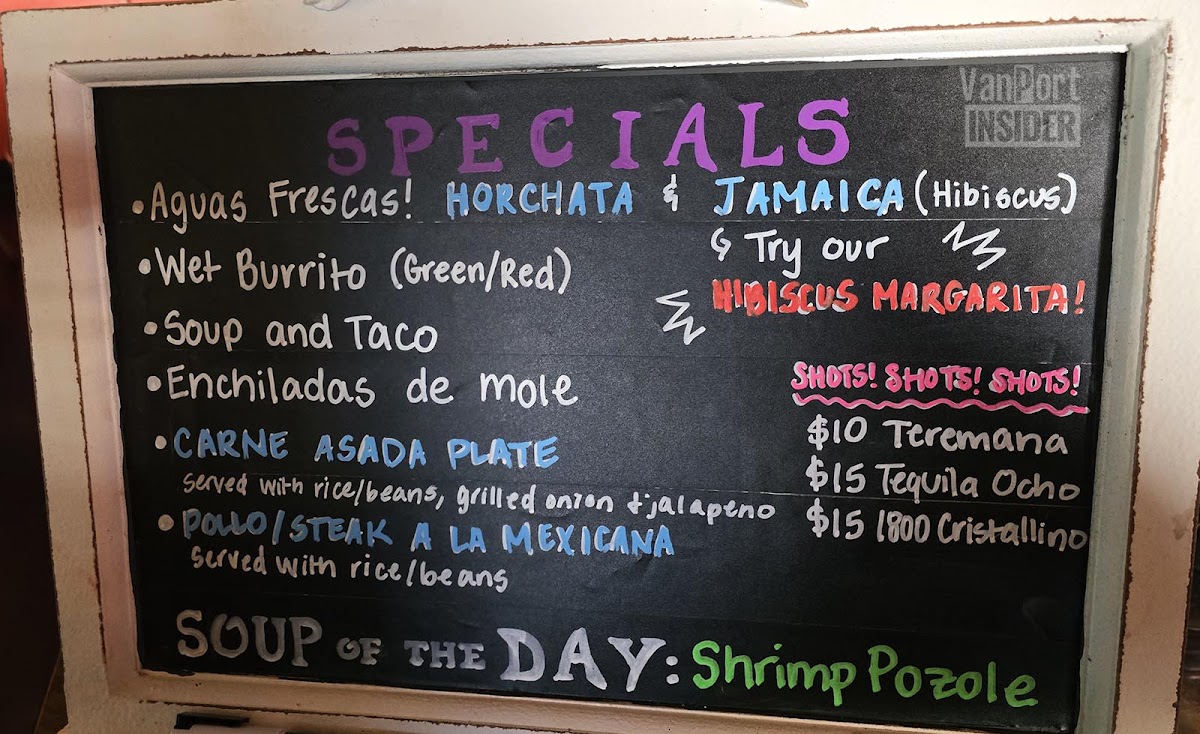 VanPort
INSIDER
SPECIALS
• Aguas Frescas! HORCHATA & JAMAICA (Hibiscus)
↳ Try our
HIBISCUS MARGARITA!
• Wet Burrito (Green/Red)
• Soup and Taco
• Enchiladas de mole
• CARNE ASADA PLATE
served with rice/beans, grilled onion & jalapeno
• POLLO/STEAK A LA MEXICANA
served with rice/beans
SHOTS! SHOTS! SHOTS!
$10 Teremana
$15 Tequila Ocho
$15 1800 Cristallino
SOUP OF THE DAY: Shrimp Pozole